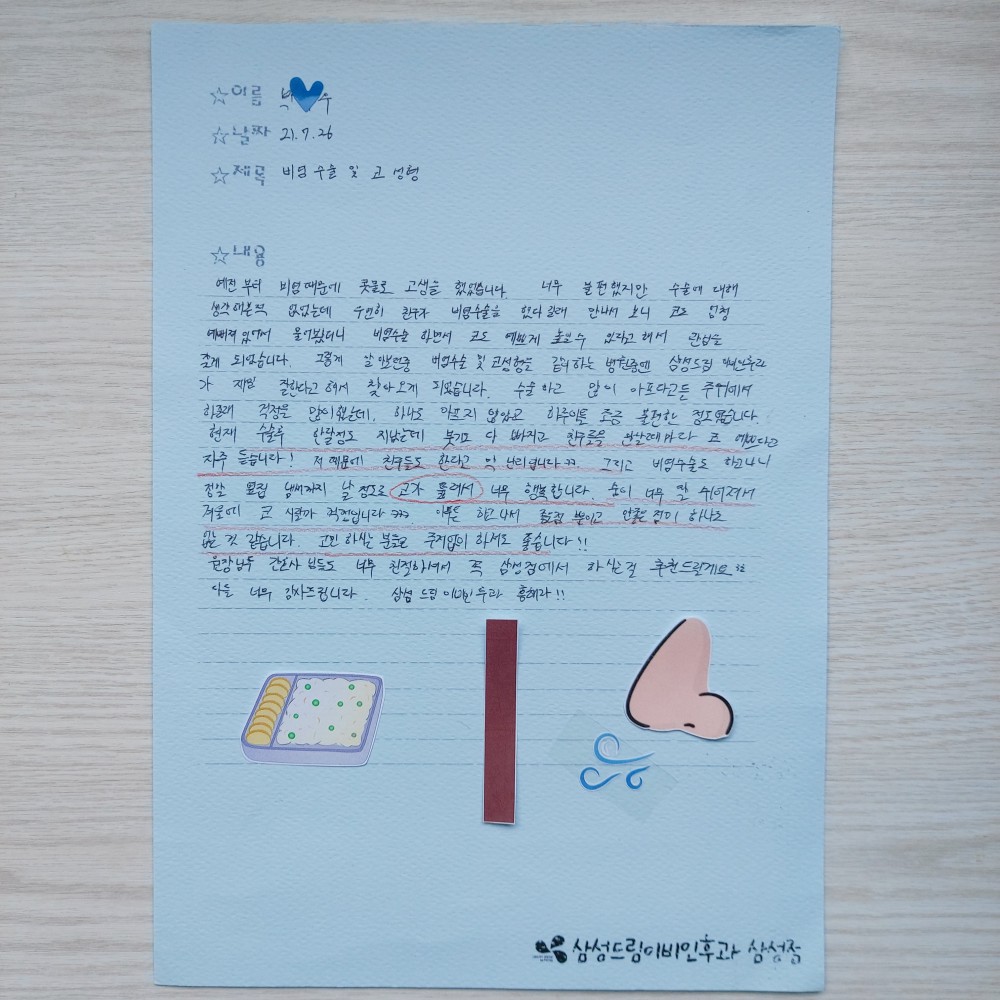 ☆이름 박 우
☆날짜 21.7.26
☆제목 비염수술 및 코 성형
☆내용
예전부터 비염때문에 콧물로 고생을 했었습니다. 너무 불편했지만 수술에 대해
생각해본적 없었는데 우연히 친구가 비염수술을 했다길래 만나서 보니 코도 엄청
예뻐져 있어서 물어봤더니 비염수술 하면서 코도 예쁘게 할수 있다고 해서 관심을
갖게 되었습니다. 그렇게 알아보던중 비염수술 및 코성형을 같이하는 병원중엔 삼성드림 이비인후과
가 제일 잘한다고 해서 찾아오게 되었습니다. 수술하고 많이 아프다고들 주위에서
하길래 걱정을 많이했는데, 하나도 아프지 않았고 하루이틀 조금 불편한 정도였습니다.
현재 수술후 한달정도 지났는데 붓기도 다 빠지고 친구들을 만날때마다 코 예쁘다고
자주 듣습니다! 저 때문에 친구들도 한다고 막 난리입니다ㅋㅋ. 그리고 비염수술도 하고나니
정말 옆집 냄새까지 날 정도로 코가 뚫려서 너무 행복합니다. 숨이 너무 잘 쉬어져서
겨울에 코 시릴까 걱정입니다ㅋㅋㅋ. 아무튼 하고나서 장점 뿐이고 안좋은 점이 하나도
없는 것 같습니다. 고민 하시는 분들은 주저없이 하셔도 좋습니다!!
원장님두 간호사 님들도 너무 친절하셔서 꼭 삼성점에서 하시는걸 추천드릴게요
다들 너무 감사드립니다. 삼성 드림 이비인후과 흥해라!!
삼성드림이비인후과 삼성점